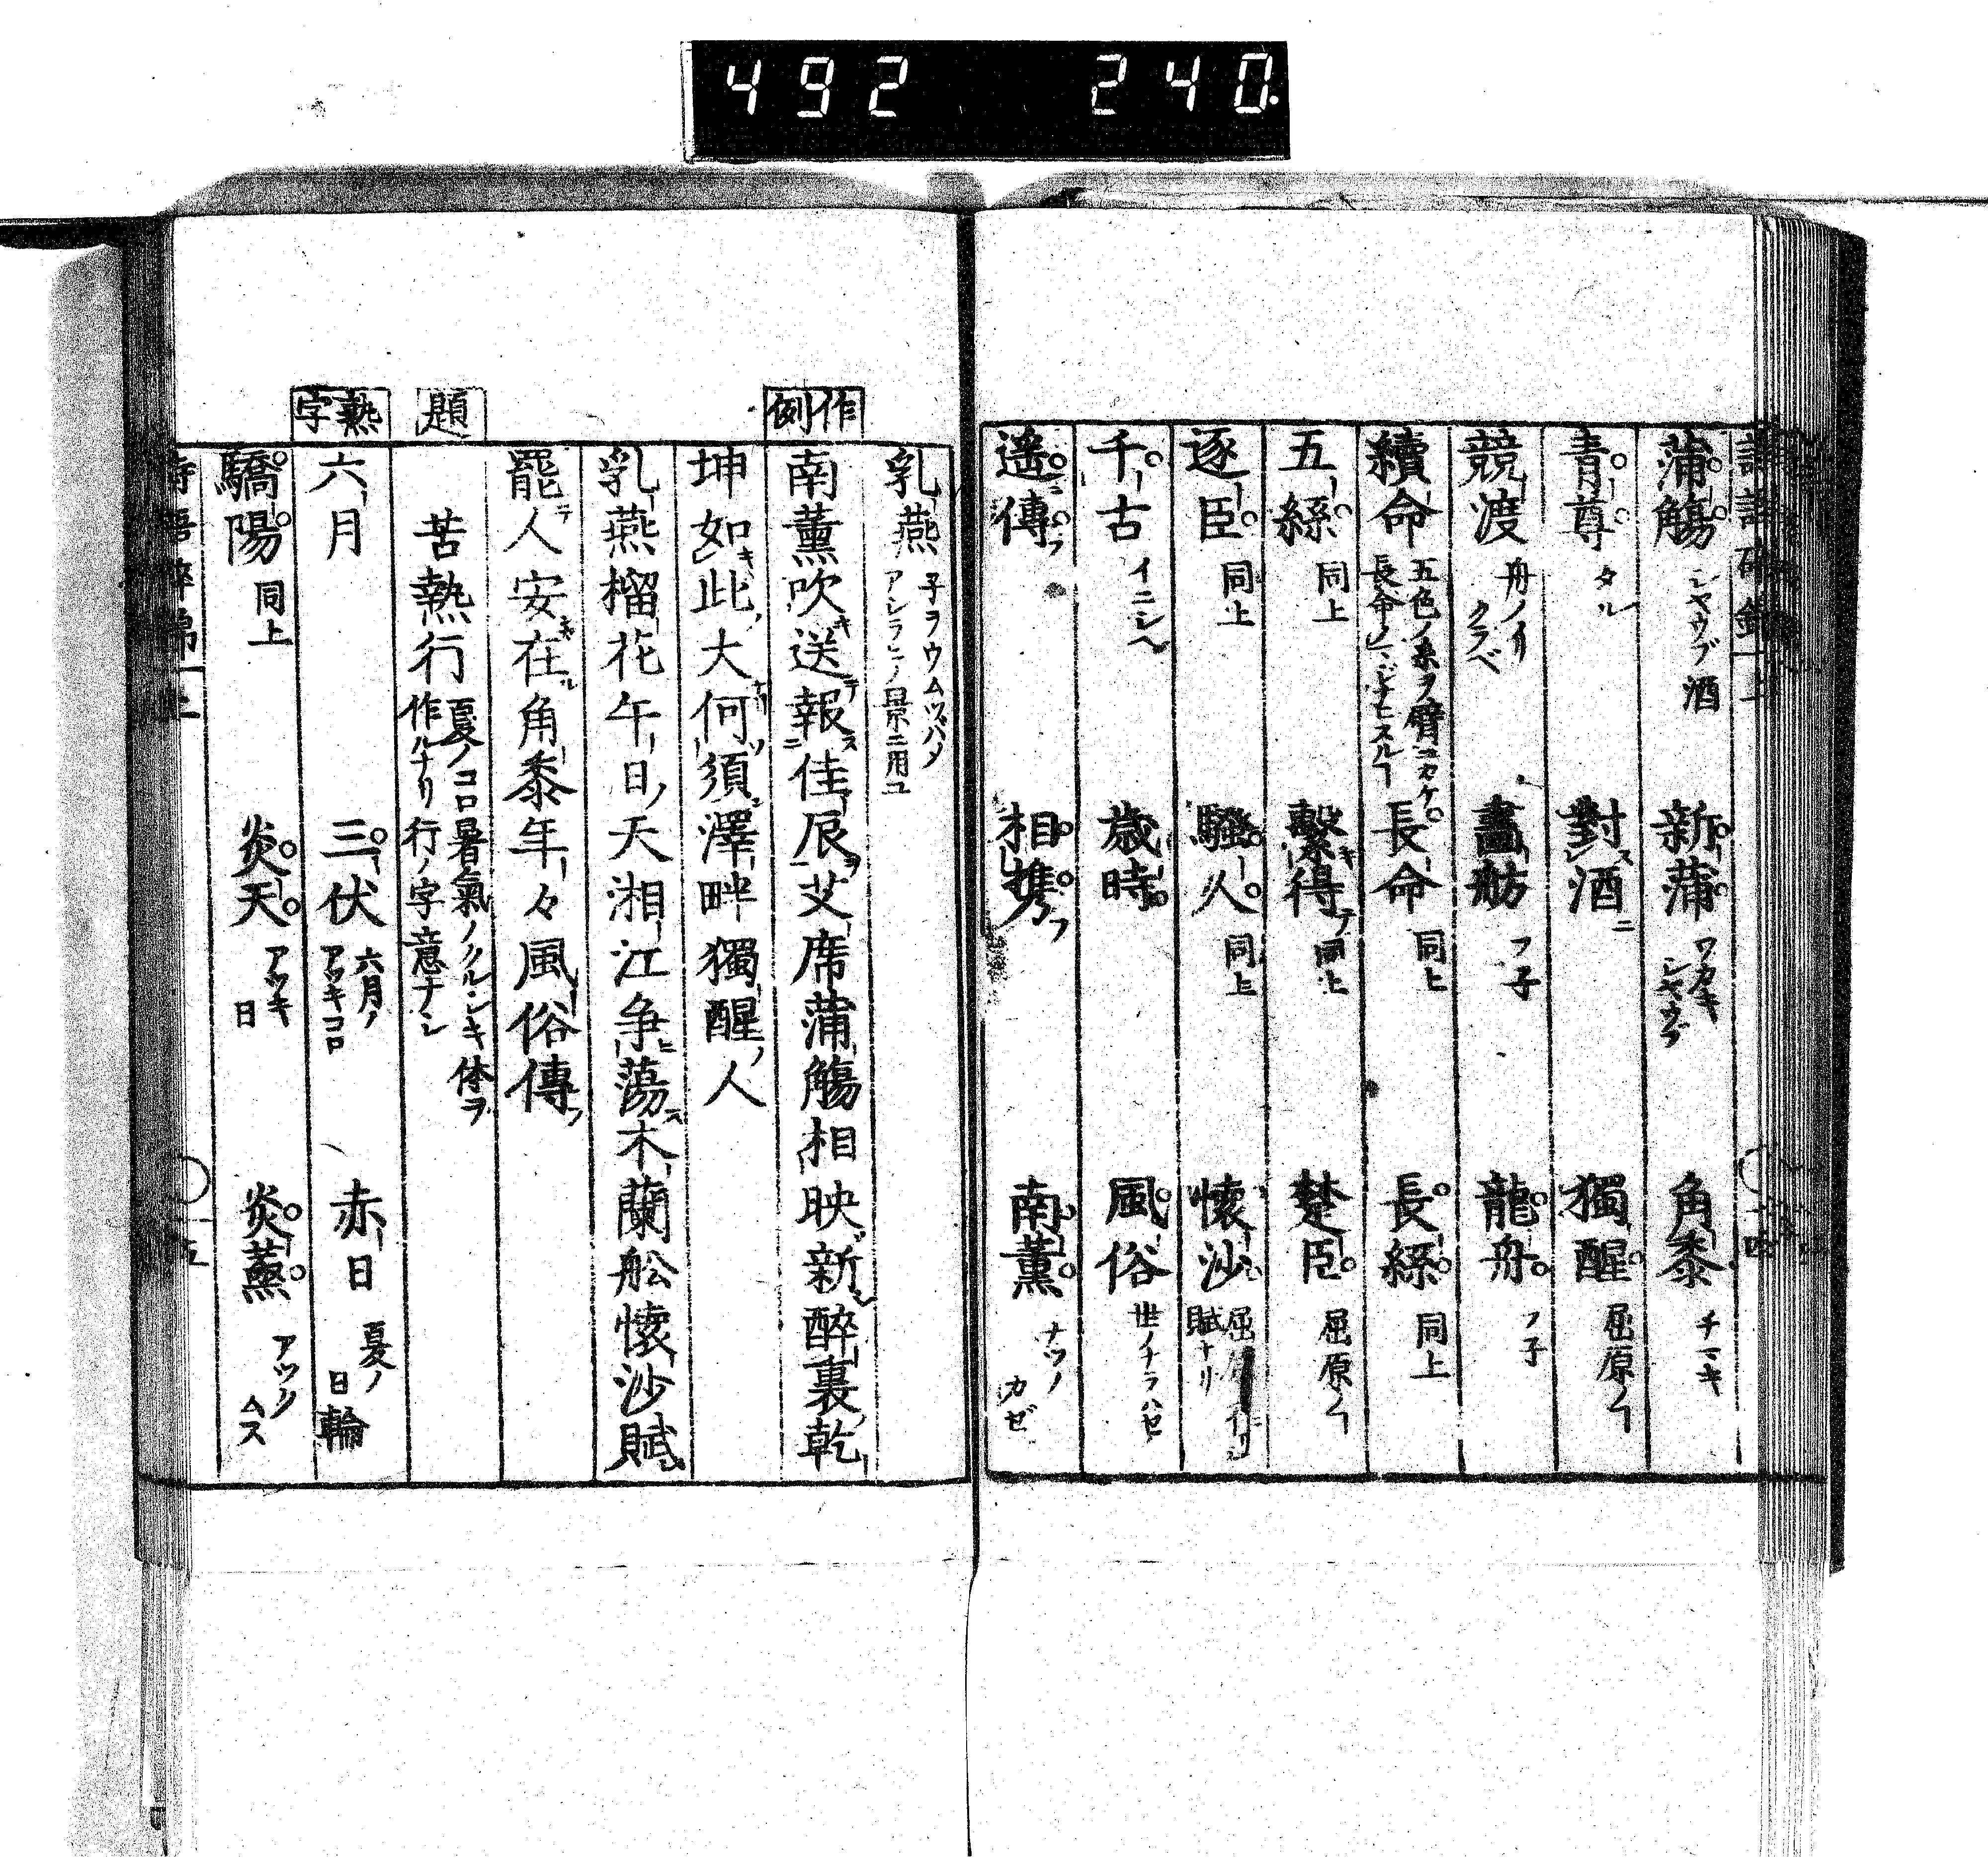 492 240.
蒲觴 シヤウブ酒 新蒲 ワカキシヤウブ 角黍 チマキ
青尊 タル 對酒 獨醒 屈原ノ
競渡 舟ノ クラベ 畫舫 フ子 龍舟 フ子
續命 五色ノ糸ヲ臂ニカケ長命ノマジナヒスル 長命 同上 長絲 同上
五絲 同上 繫得 同上 楚臣 屈原ノ
逐臣 同上 騷人 同上 懷沙 賦ナリ
千古 イニシヘ 歳時 風俗 世ノナラハセ
遥傳 相携 南薫 ナツノカゼ
乳燕 子ヲウムツバメ アシラヒノ景ニ用ユ
作例
南薫吹送報佳辰艾席蒲觴相映新醉裏乾
坤如此大何須澤畔獨醒人
乳燕榴花午日天湘江爭蕩木蘭舩懷沙賦
罷人安在角黍年々風俗傳
題
苦熱行 夏ノコロ暑氣ノクルシキ体ヲ作ルナリ行ノ字意ナシ
熱字
六月 三伏 六月ノアツキコロ 赤日 夏ノ日輪
驕陽 同上 炎天 アツキ日 炎蒸 アツクムス